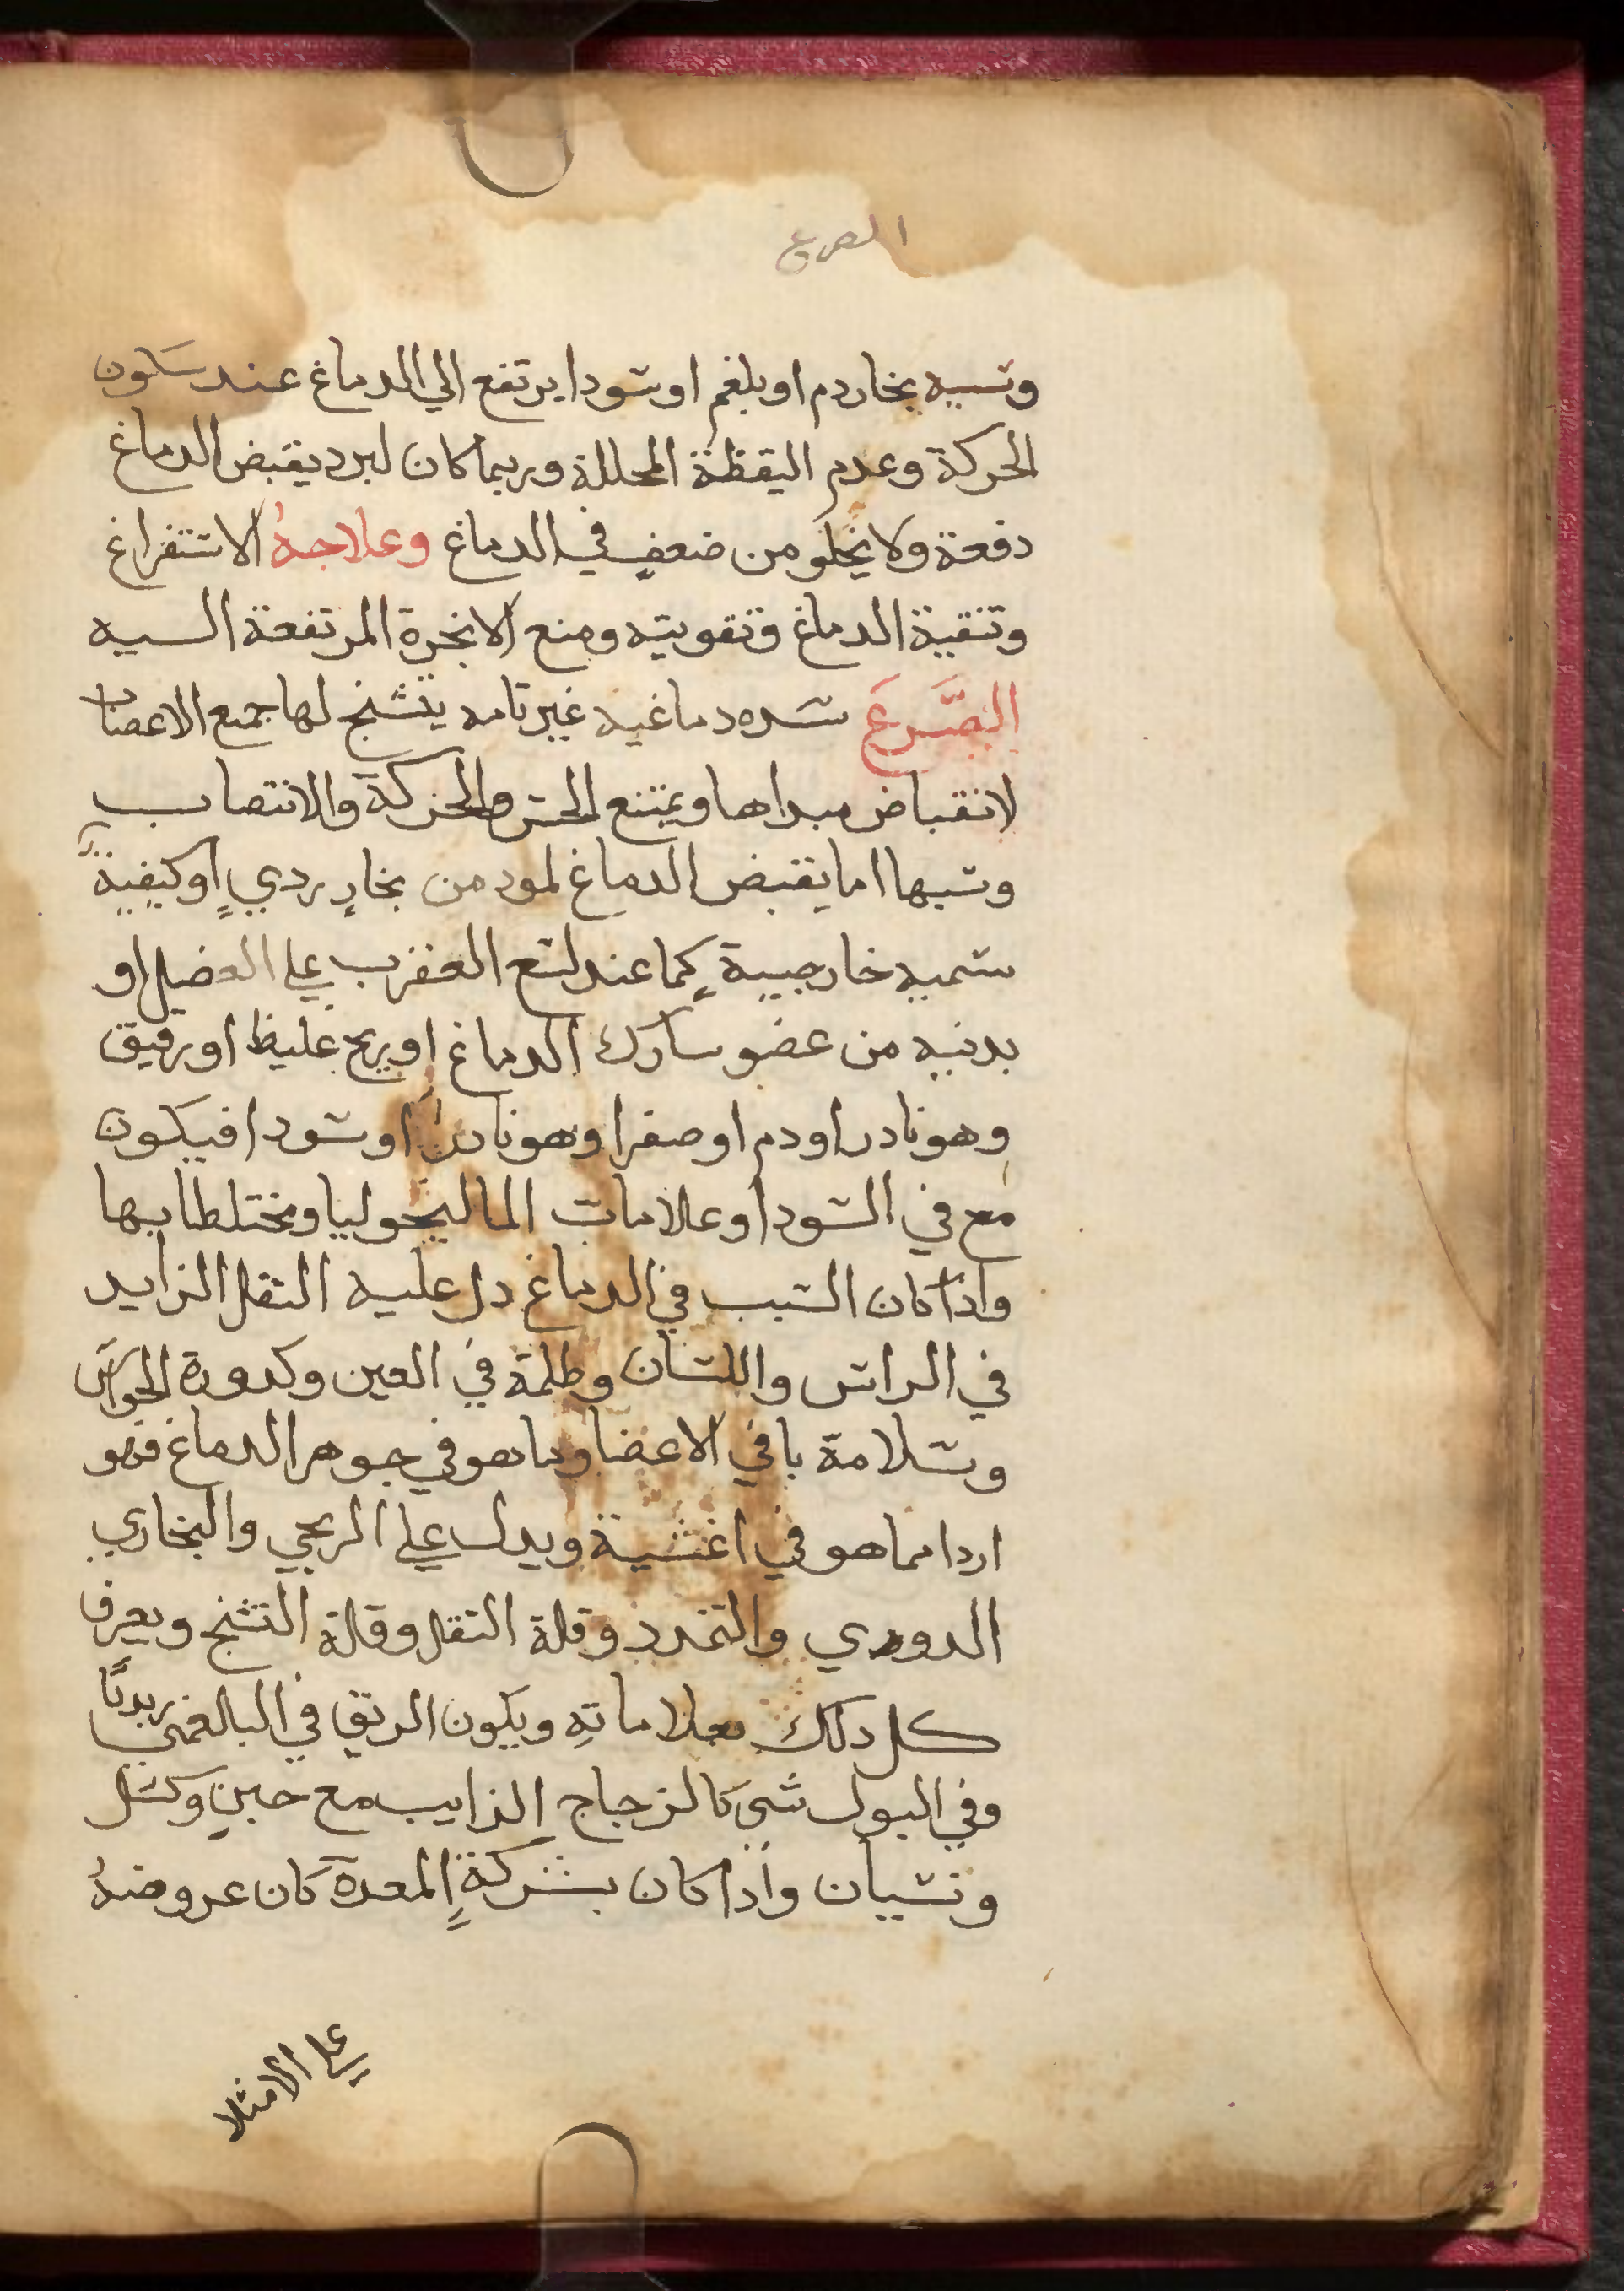 الصرع
وسببه بخار دم او بلغم او سودا يرتفع الي الدماغ عند سكون
الحركة وعدم اليقظة المحللة وربما كان لبرد يقبض الدماغ
دفعة ولا يخلو من ضعف في الدماغ وعلاجهُ الاستفراغ
وتنقية الدماغ وتقويته ومنع الابخرة المرتفعة اليه
الصَّرعَ سده دماغيه غير تامه يتشنج لها جميع الاعصاب
لانقباض مبداها ويمتنع الحس والحركة والانتصاب
وسببها اما يقبض الدماغ لمود من بخارٍ رديٍ او كيفيةٍ
سميه خارجيية كما عند لسع العقرب علي العضل او
بدنيه من عضو سارك الدماغ او ريح غليظ او رقيق
وهو نادر او دم او صفرا وهو نادر او سودا فيكون
مع في السودا وعلامات الماليخوليا ومختلطا بها
واذا كان السبب في الدماغ دل عليه الثقل الزايد
في الراس واللسان وظلمة في العين وكدورة الحواس
وسلامة باقي الاعضا وما هو في جوهر الدماغ فهو
اردا مما هو في اغشية ويدل علي الريحي والبخاري
الدوري والتمدد وقلة الثقل وقلة التشنج ويعرف
كل دلك بعلاماتهِ ويكون الريق في البالغمي زبديًا
وفي البول شي كالزجاج الذايب مع جبنٍ وكسل
ونسيان واذا كان بشركةِ المعدة كان عروضهُ
علي الامتلا